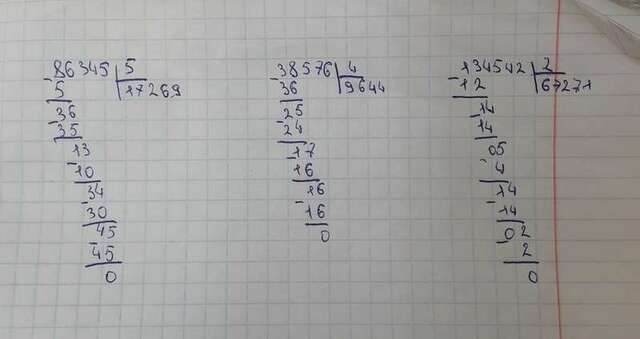 86345 5
- 5 17269
36
- 35
13
- 10
34
- 30
45
- 45
0
38576 4
- 36 9644
25
- 24
17
- 16
16
- 16
0
134542 2
- 12 67271
14
- 14
05
- 4
14
- 14
02
- 2
0